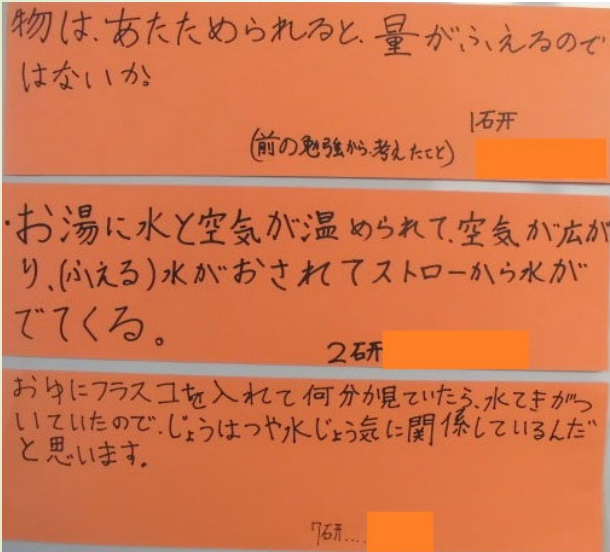 物は、あたためられると、量がふえるので
はないか。
1研
(前の勉強から、考えたこと)
・お湯に水と空気が温められて、空気が広が
り、(ふえる)水がおされてストローから水が
でてくる。
2研
おゆにフラスコを入れて何分か見ていたら、水てきがつ
いていたので、じょうはつや水じょう気に関係しているんだ
と思います。
7研....